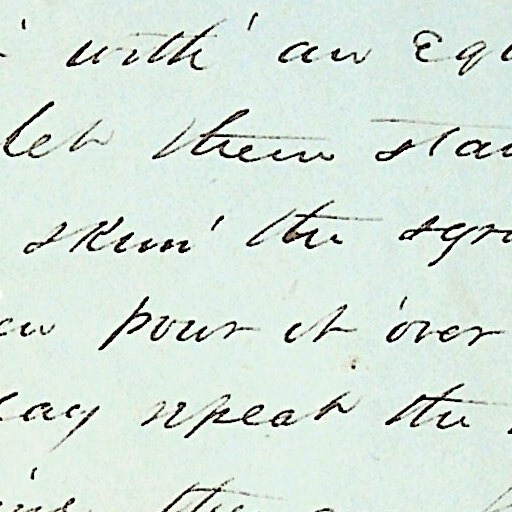 with an equ
let them stan
skim the syru
pour it over
repeat the